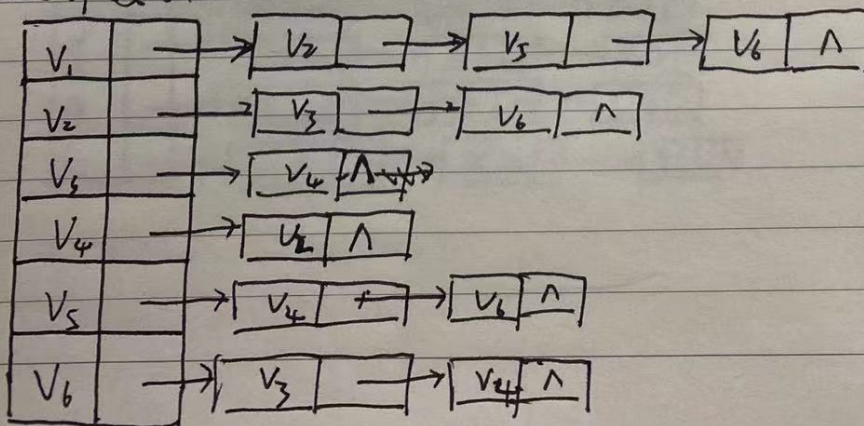 V₁ V₂ V₅ V₆ ∧
V₂ V₃ V₆ ∧
V₃ V₄ ∧
V₄ ∧
V₅ V₄ V₆ ∧
V₆ V₃ V₄ ∧